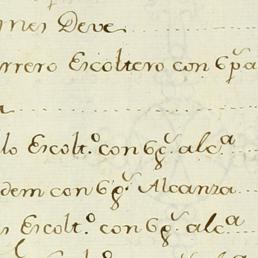 mes Deve
rrero Escoltero con 6 p.a
a
lo Escolt.o con 6 g.s alc.a
dem con 6 g.s Alcanza
s Escolt.o con 6 g.s alc.a